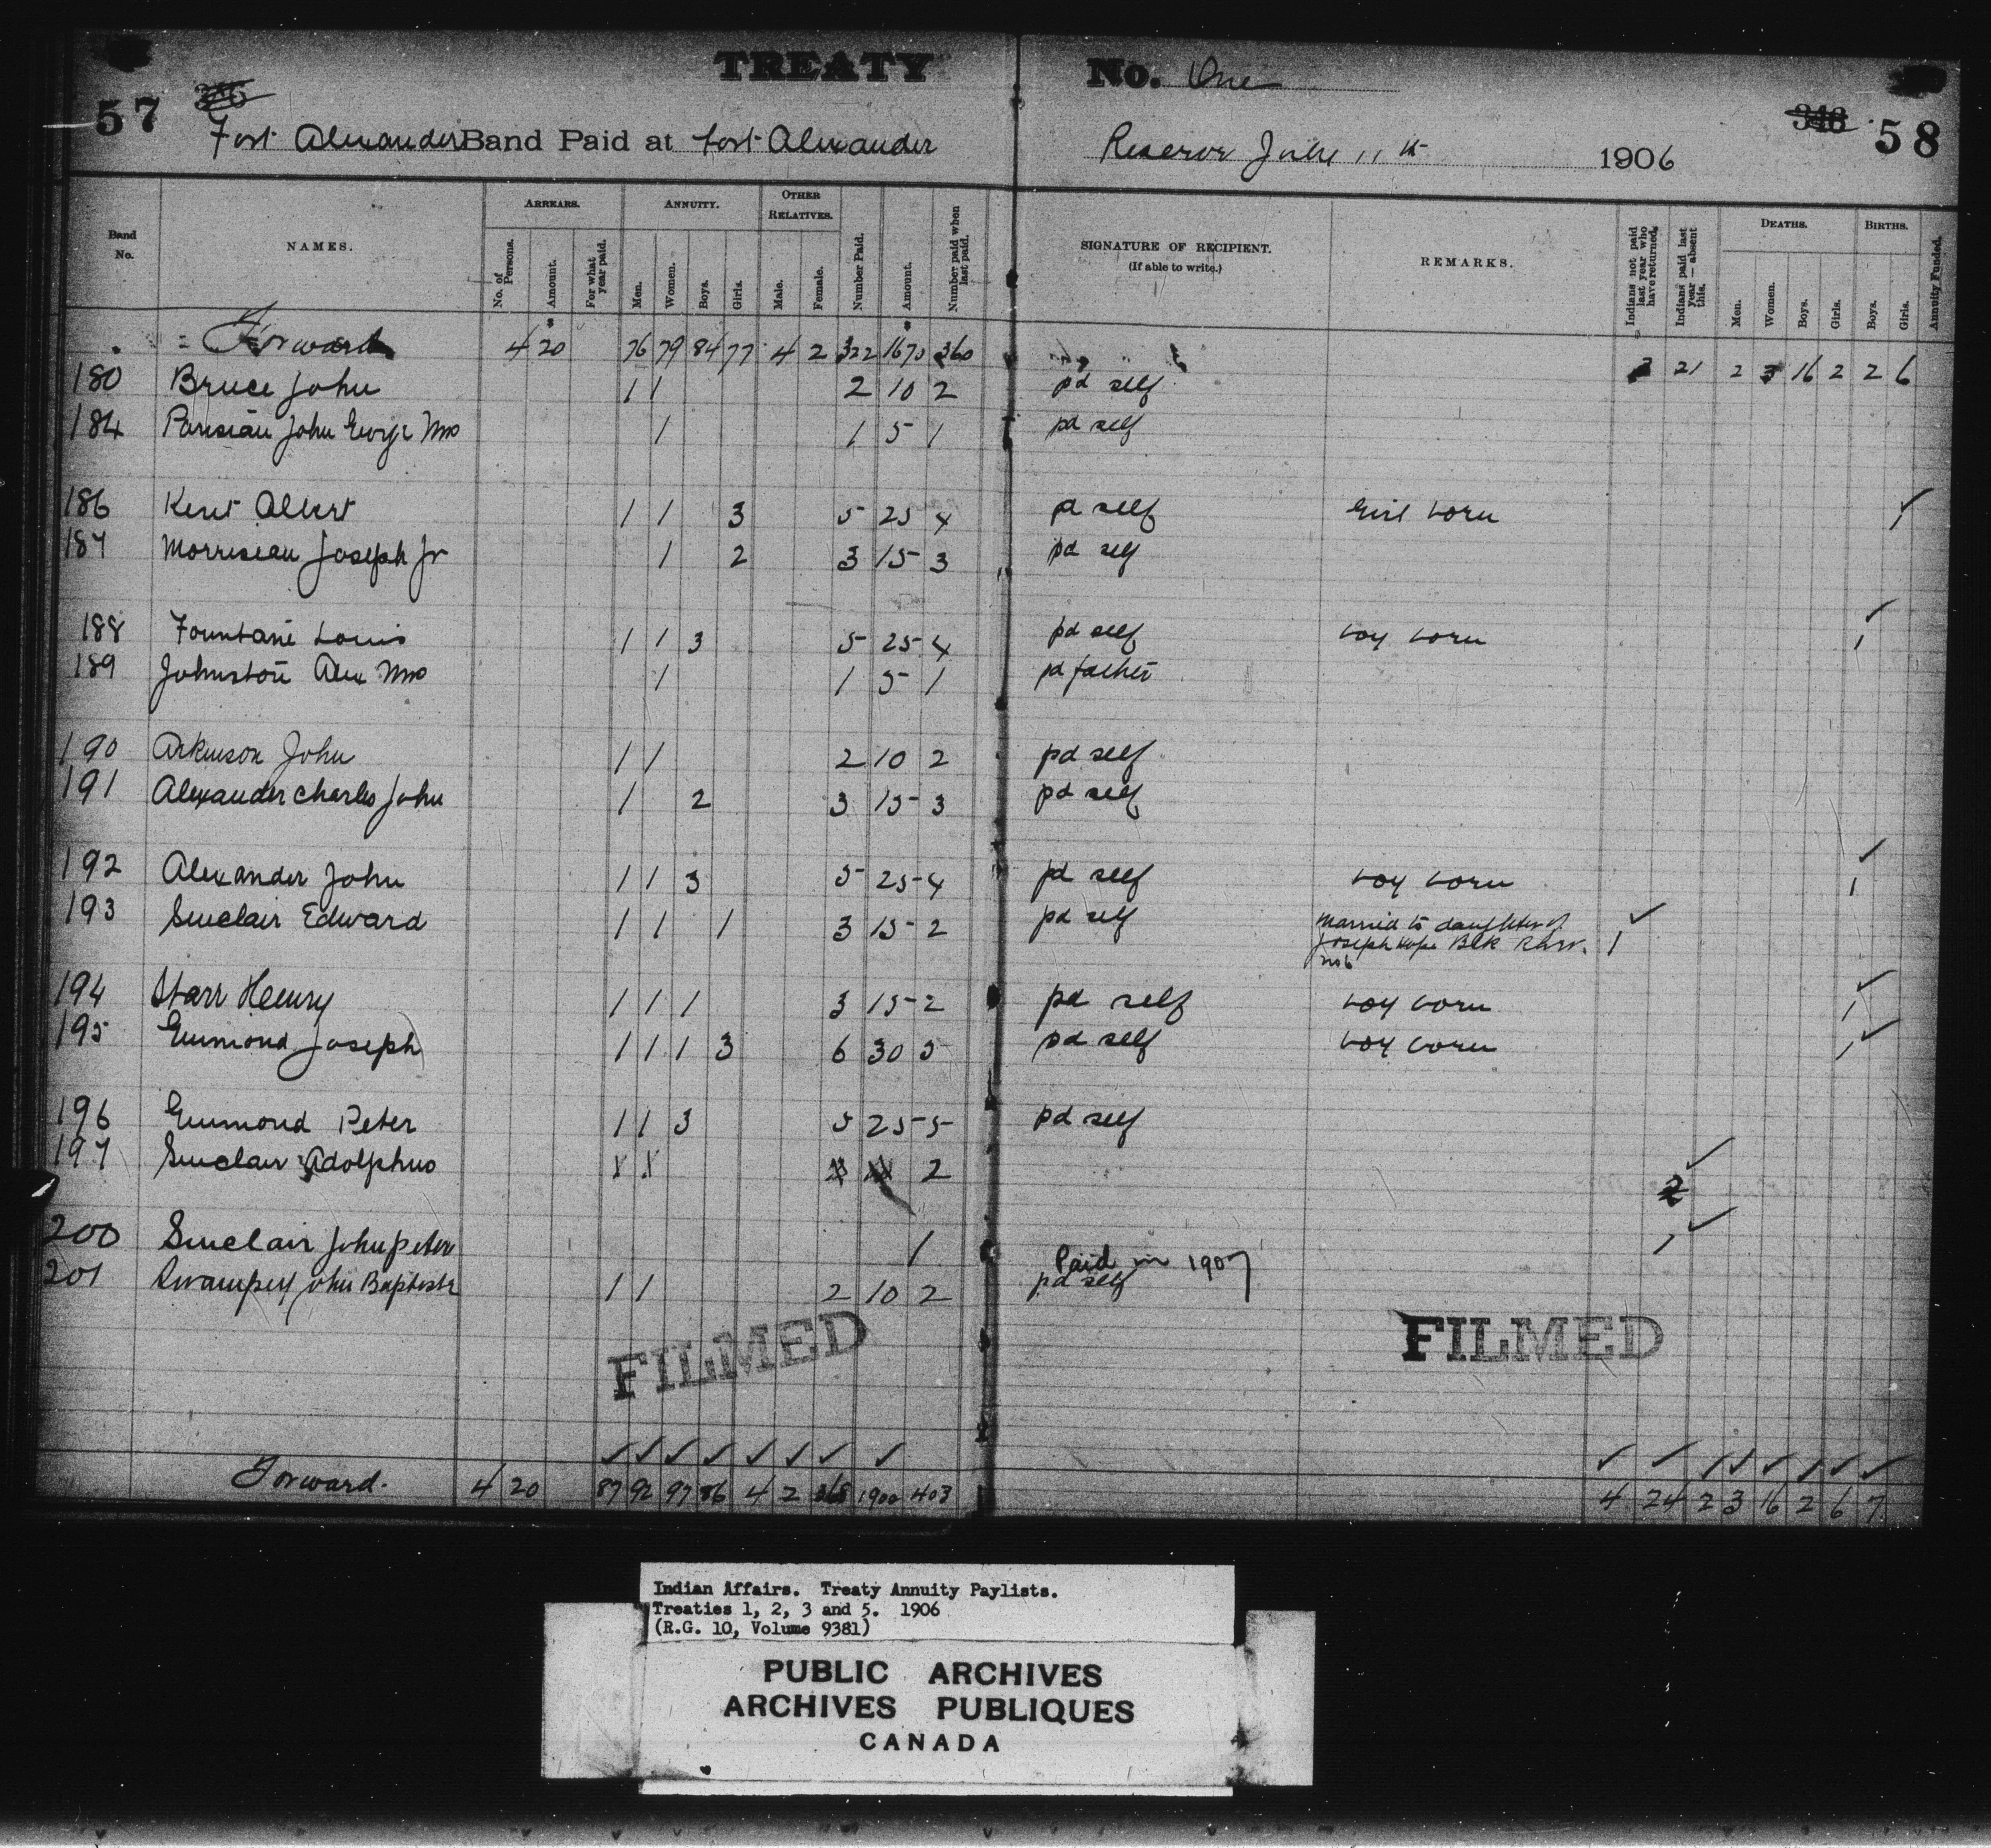 TREATY No. One
57 58
Fort Alexander Band Paid at Fort Alexander Reserve 11th 1906
Band No. NAMES. ARREARS. No. of Persons. Amount. For what year paid. ANNUITY. Men. Women. Boys. Girls. OTHER RELATIVES. Male. Female. Number Paid. Amount. Number paid when last paid. SIGNATURE OF RECIPIENT. (If able to write.) REMARKS. Indians not paid last year who have returned. Indians paid last year — absent this. DEATHS. Men. Women. Boys. Girls. BIRTHS. Boys. Girls. Annuity Funded.
Forward 4 20 76 79 84 77 4 2 322 1670 360 21 2 3 16 2 2 6
180 Bruce John 1 1 2 10 2 pd self
184 Parisian John George Mrs 1 1 5 1 pd self
186 Kent Albert 1 1 3 5 25 4 pd self Girl born 1
187 Morriseau Joseph Jr 1 2 3 15 3 pd self
188 Fountaine Louis 1 1 3 5 25 4 pd self boy born 1
189 Johnston Alex Mrs 1 1 5 1 pd father
190 Arkinson John 1 1 2 10 2 pd self
191 Alexander Charles John 1 2 3 15 3 pd self
192 Alexander John 1 1 3 5 25 4 pd self boy born 1
193 Sinclair Edward 1 1 1 3 15 2 pd self Married to daughter of Joseph Hope Bck Rivr. No 6 1
194 Starr Henry 1 1 1 3 15 2 pd self boy born 1
195 Guimond Joseph 1 1 1 3 6 30 5 pd self boy born 1
196 Guimond Peter 1 1 3 5 25 5 pd self
197 Sinclair Adolphus 2 2
200 Sinclair John Peter 1 Paid in 1907 1
201 Swampey John Baptiste 1 1 2 10 2 pd self
FILMED FILMED
Forward. 4 20 87 92 97 86 4 2 368 1900 403 4 24 2 3 16 2 6 7
Indian Affairs. Treaty Annuity Paylists.
Treaties 1, 2, 3 and 5. 1906
(R.G. 10, Volume 9381)
PUBLIC ARCHIVES
ARCHIVES PUBLIQUES
CANADA